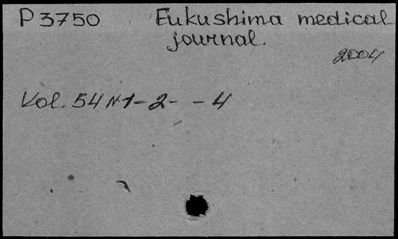 P3750 Fukushima medical
journal.
2004
Vol. 54 N1-2- -4